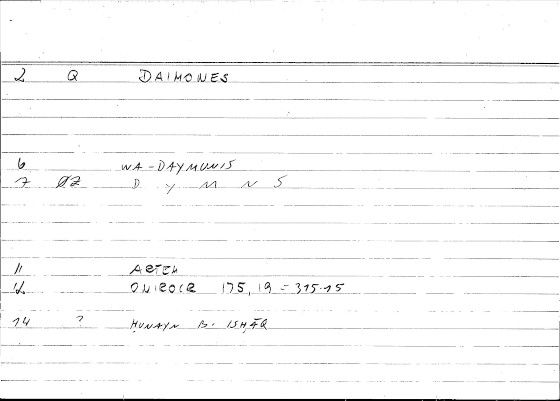 2 Q DAIMONES
6 WA-DAYMUNIS
7 02 D Y M N S
11 ARTEM
12 ONIROCR 175,19 = 315.15
14 ? ḤUNAYN B. ISḤĀQ